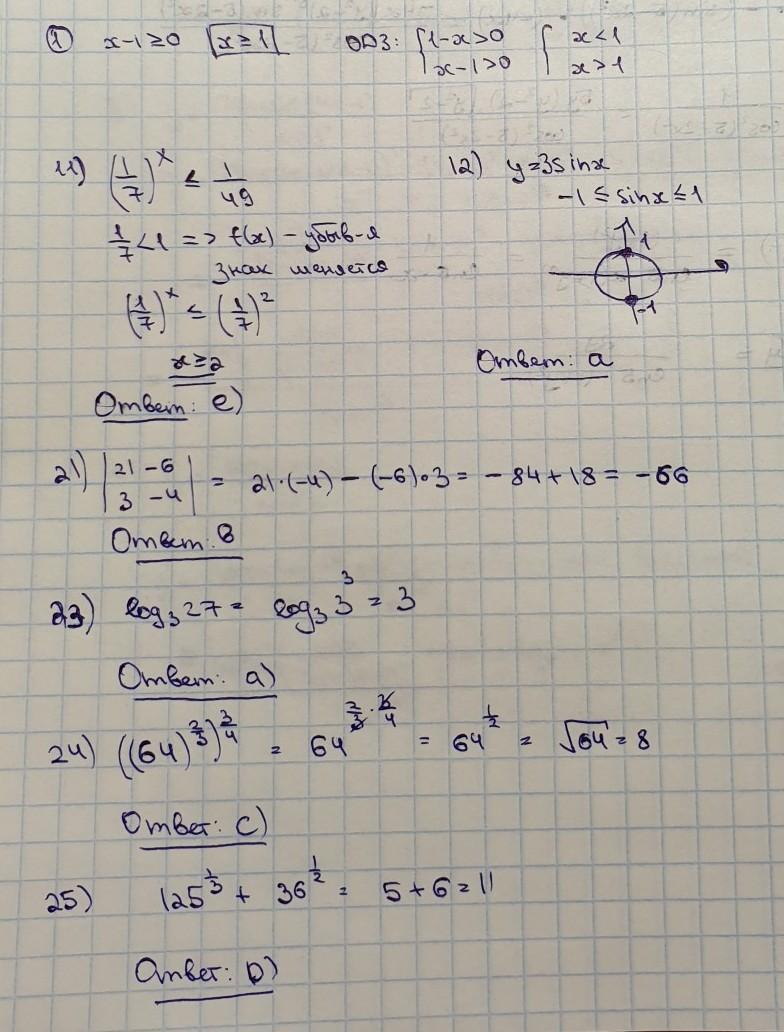 ① x-1≥0 x≥1 ОДЗ: { 1-x>0 { x<1
x-1>0 x>1
11) (1/7)^x ≤ 1/49
1/7<1 => f(x) - убыв-я
знак меняется
(1/7)^x ≤ (1/7)^2
x≥2
Ответ: e)
12) y=3sinx
-1≤sinx≤1
1
-1
Ответ: a
21) |21 -6| = 21·(-4) - (-6)·3 = -84+18 = -66
|3 -4|
Ответ: B
23) log₃27 = log₃3³ = 3
Ответ: a)
24) ((64)^(2/3))^(3/4) = 64^(2/3·3/4) = 64^(1/2) = √64 = 8
Ответ: c)
25) 125^(1/3) + 36^(1/2) = 5+6=11
Ответ: D)